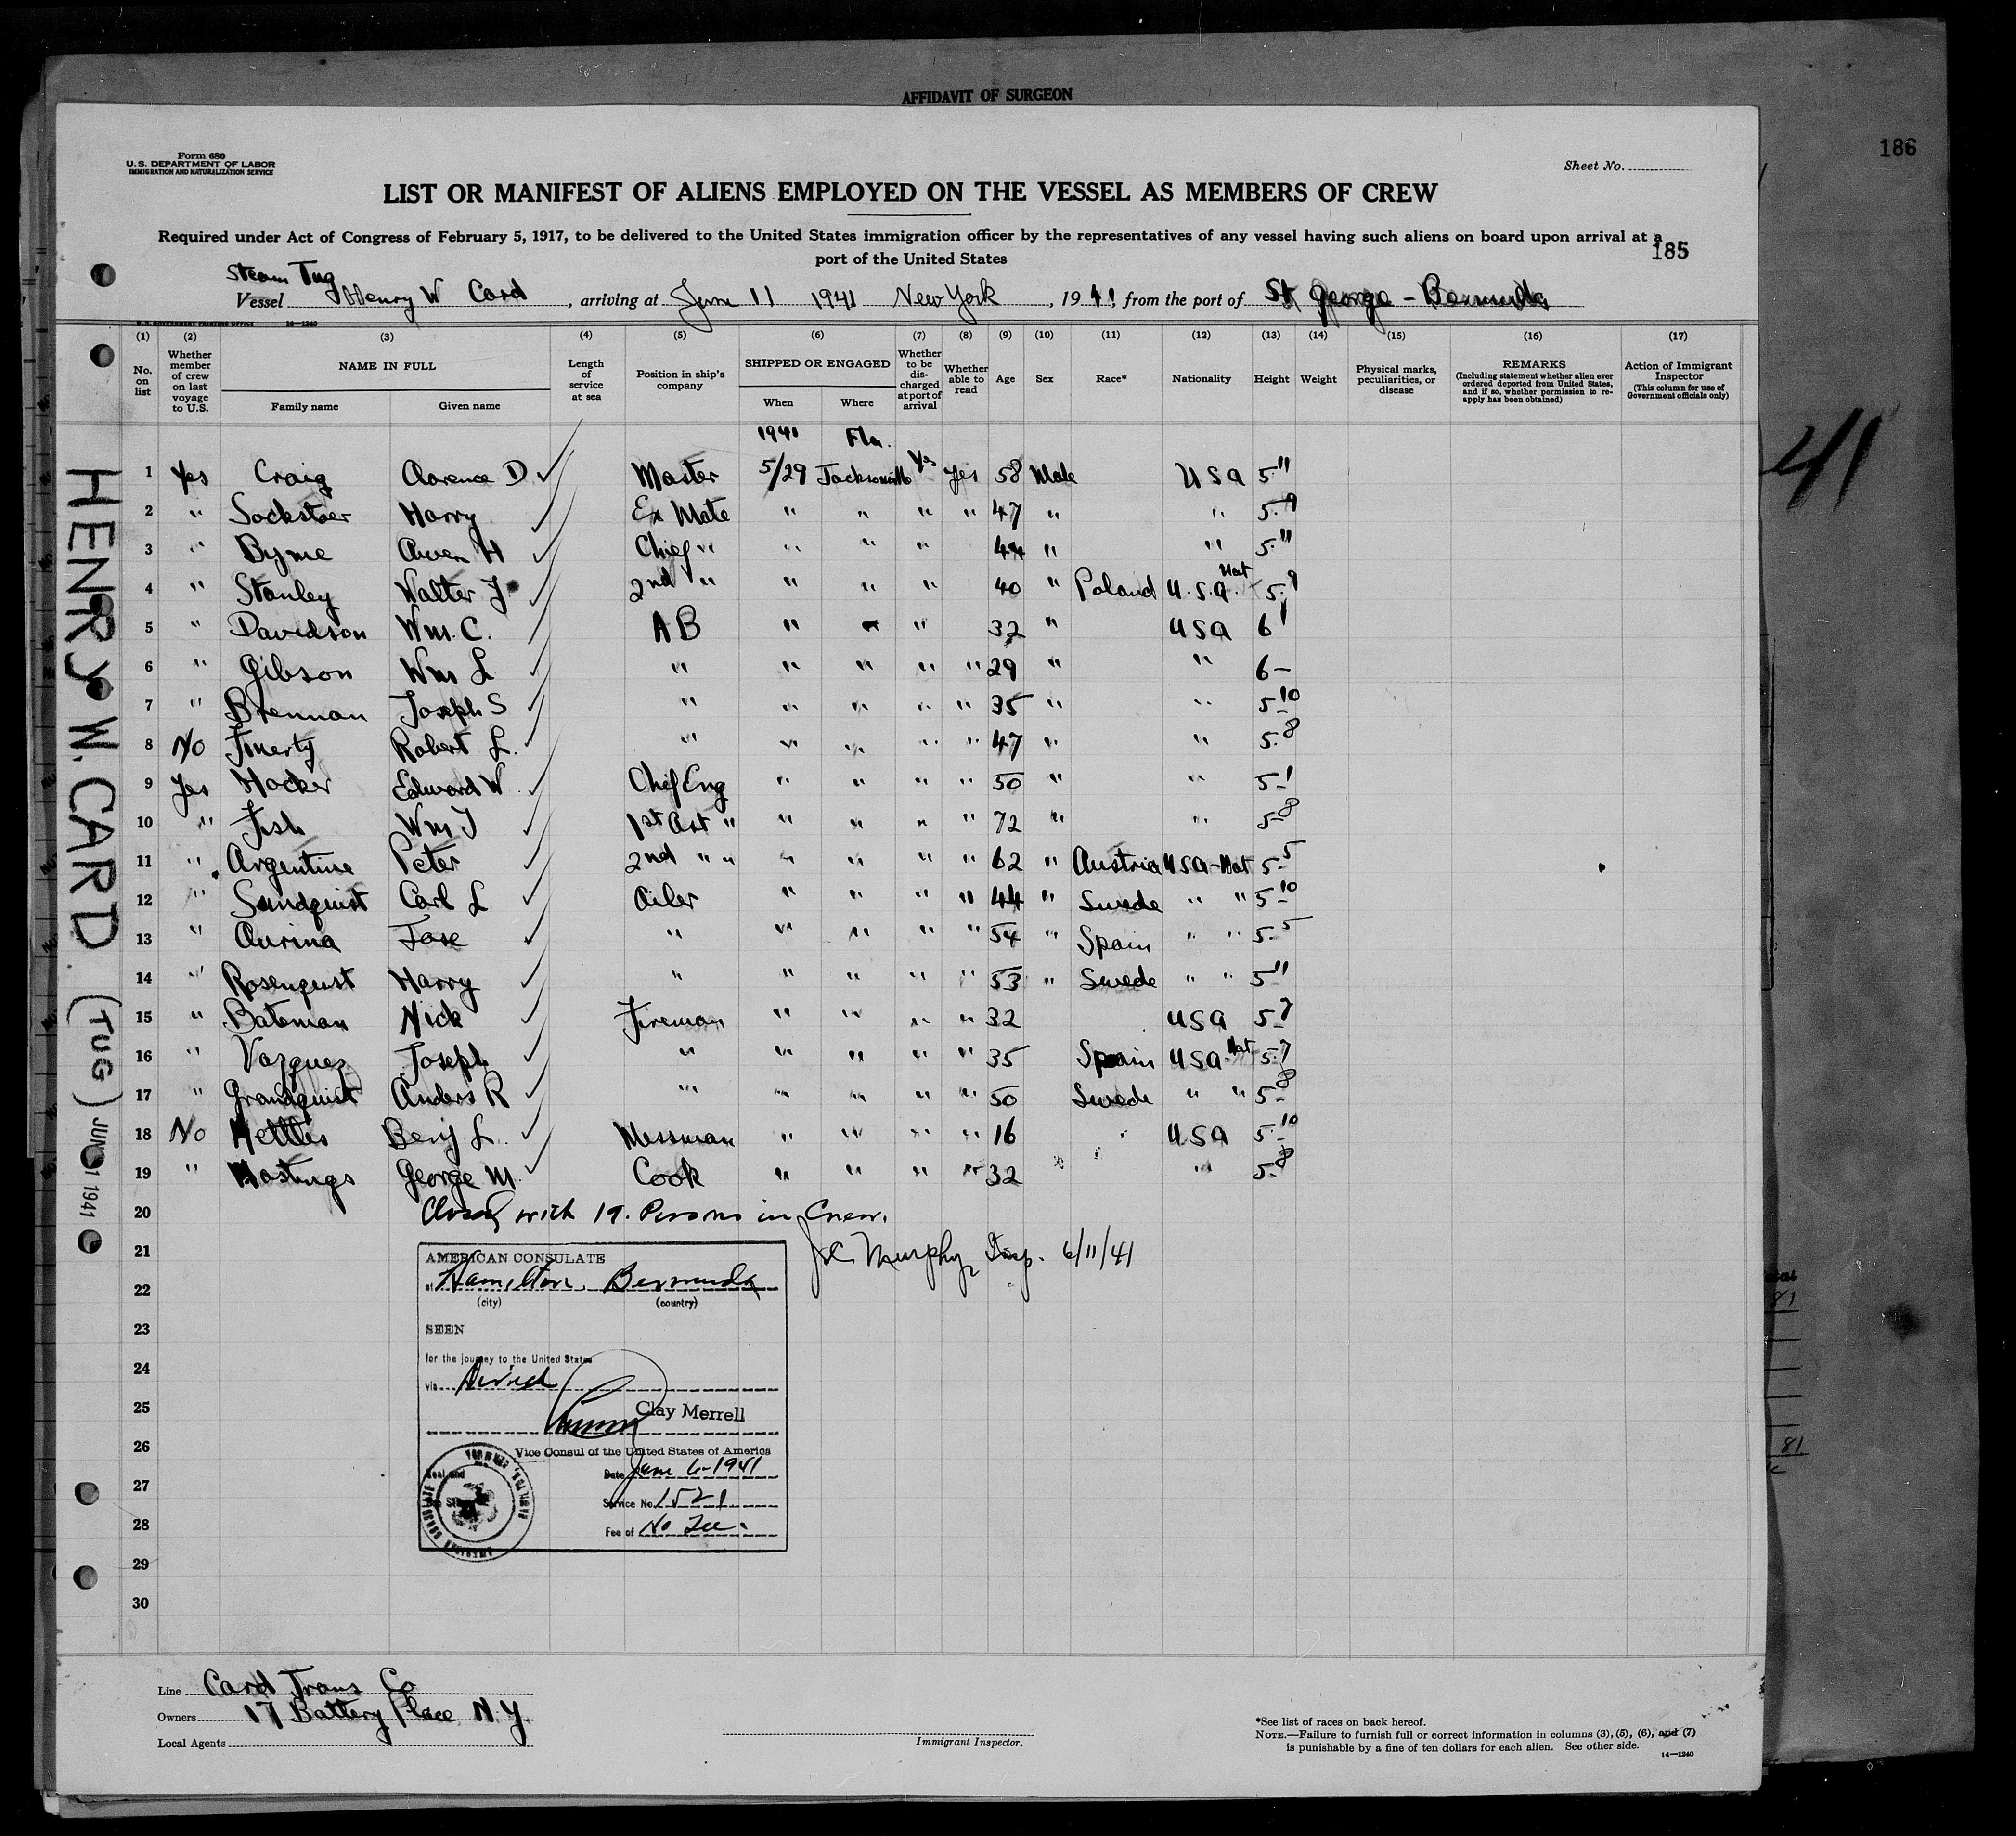 AFFIDAVIT OF SURGEON
186
Form 680
U.S. DEPARTMENT OF LABOR
IMMIGRATION AND NATURALIZATION SERVICE
Sheet No.
LIST OR MANIFEST OF ALIENS EMPLOYED ON THE VESSEL AS MEMBERS OF CREW
Required under Act of Congress of February 5, 1917, to be delivered to the United States immigration officer by the representatives of any vessel having such aliens on board upon arrival at a
port of the United States
185
Steam Tug
Vessel Henry W Card, arriving at June 11 1941 New York, 1941 from the port of St George - Bermuda
U.S. GOVERNMENT PRINTING OFFICE 14—1240
(1) (2) (3) (4) (5) (6) (7) (8) (9) (10) (11) (12) (13) (14) (15) (16) (17)
No. on list
Whether member of crew on last voyage to U.S.
NAME IN FULL
Family name Given name
Length of service at sea
Position in ship's company
SHIPPED OR ENGAGED
When Where
Whether to be discharged at port of arrival
Whether able to read
Age
Sex
Race*
Nationality
Height
Weight
Physical marks, peculiarities, or disease
REMARKS
(Including statement whether alien ever ordered deported from United States, and if so, whether permission to reapply has been obtained)
Action of Immigrant Inspector
(This column for use of Government officials only)
1941 Fla.
1 Yes Craig Clarence D Master 5/29 Jacksonville Yes Yes 58 Male USA 5-11
2 " Harry Ex Mate " " " " 47 " " 5-9
3 " Byrne Owen H Chief " " " " 44 " " 5-11
4 " Stanley Walter J 2nd " " " " 40 " Poland U.S.A. Nat 5-9
5 " Davidson Wm. C. AB " " " 32 " USA 6 1
6 " Gibson Wm L " " " " " 29 " " 6-
7 " Brennan Joseph S " " " " " 35 " " 5-10
8 No Finerty Robert L. " " " " " 47 " " 5-8
9 Yes Hocker Edward W Chief Eng " " " " 50 " " 5-1
10 " Fish Wm J 1st Ast " " " " " 72 " " 5-8
11 " Argentine Peter 2nd " " " " " " 62 " Austria USA-Nat 5-5
12 " Sundquist Carl L Oiler " " " " 44 " Swede " " 5-10
13 " Aurina Jose " " " " " 54 " Spain " " 5-5
14 " Rosenquist Harry " " " " " 53 " Swede " " 5-11
15 " Bateman Nick Fireman " " " " 32 USA 5-7
16 " Vazquez Joseph " " " " " 35 Spain USA-Nat 5-7
17 " Grandquist Anders R " " " " " 50 Swede " " 5-8
18 No Nettles Benj L. Messman " " " " 16 USA 5-10
19 " Hastings George M. Cook " " " " 32 " 5-8
20 Closed with 19. Persons in Crew.
21 Murphy, Insp. 6/11/41
22
23
24
25
26
27
28
29
30
AMERICAN CONSULATE
at Hamilton, Bermuda
(city) (country)
SEEN
for the journey to the United States
via Direct
Clay Merrell
Vice Consul of the United States of America
Date June 6-1941
Service No. 1521
Fee of No Fee.
HENRY W. CARD (TUG) JUN 11 1941
41
Line Card Trans Co
Owners 17 Battery Place N.Y.
Local Agents
Immigrant Inspector.
*See list of races on back hereof.
NOTE.—Failure to furnish full or correct information in columns (3), (5), (6), and (7)
is punishable by a fine of ten dollars for each alien. See other side.
14—1240